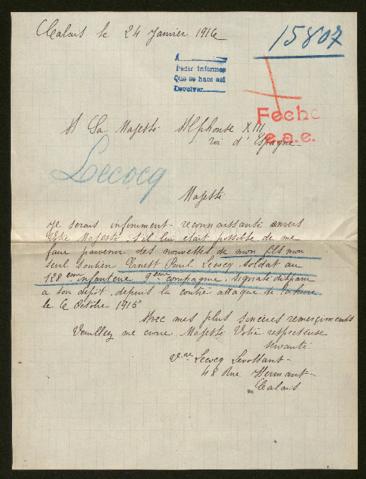 Calais le 24 Janvier 1916
15807
A
Pedir informes
Que se hace así
Devolver
Fecho
e.a.e.
A Sa Majesté Alphonse XIII
roi d'Espagne
Lecocq
Majesté
Je serais infiniment reconnaissante envers
Votre Majesté s'il lui était possible de me
faire parvenir des nouvelles de mon fils mon
seul soutien Ernest Paul Lecocq soldat au
128eme infanterie 9eme compagnie signalé disparu
a son dépôt depuis la contre attaque de Tahure
le 6 Octobre 1915
Avec mes plus sincères remerciements
Veuillez me croire Majesté Votre respectueuse
servante
Vve Lecocq
48 Rue Hermant
Calais